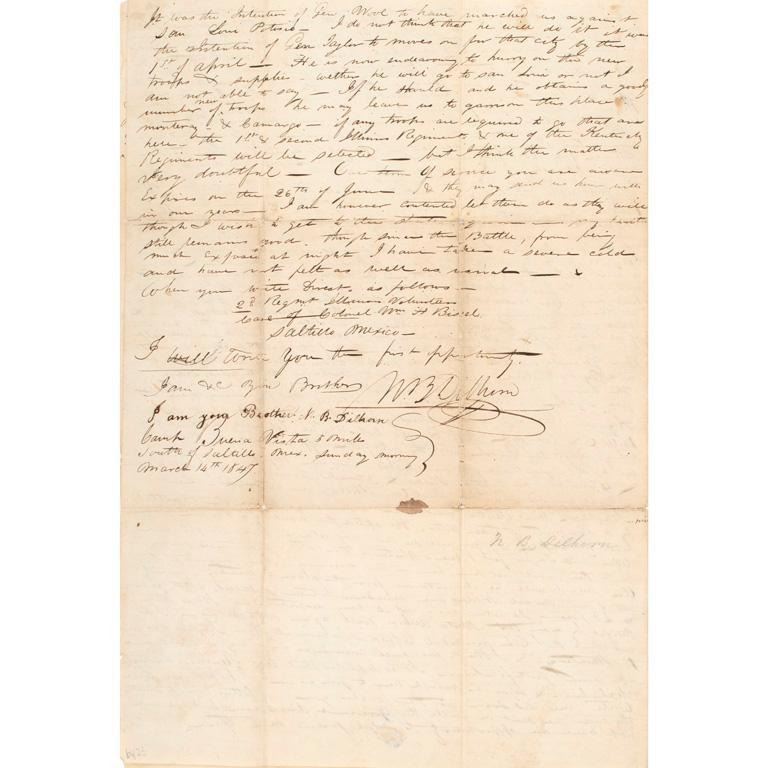 It was the Intention of Gen Wool to have marched us against
San Loui Potosi — I do not think that he will do it it was
the Intention of Gen Taylor to moves on for that city by the
1st of April — He is now endeavoring to hurry on the new
troops & supplies — wether he will go to san Louis or not I
am not able to say — If he should and he obtains a goodly
number of new troops he may leave us to garrison this place
monteray & Camargo — if any troops are required to go that are
here — the 1st & second Illinois Regiments & one of the Kentucky
Regiments will be selected — but I think the matter
very doubtful — Our term of service you are aware
Expires on the 26th of June — & they may send us home
in our years — I am however contented let them do as they will
though I wish to get to the States again — my health
still remains good. though since the Battle, from being
much Exposed at night I have taken a severe cold
and have not felt as well as usual —
When you write Direct as follows —
2d Regmt Illinois Volunteers
Care of Colonel Wm H Bissel
Saltillo Mexico —
I will write you the first opportunity.
I am &c Your Brother N. B. Dilhorn
I am your Brother N. B. Dilhorn
Camp Buena Vista 5 mile
South of Saltillo Mex. Sunday morning
March 14th 1847
N B Dilhorn